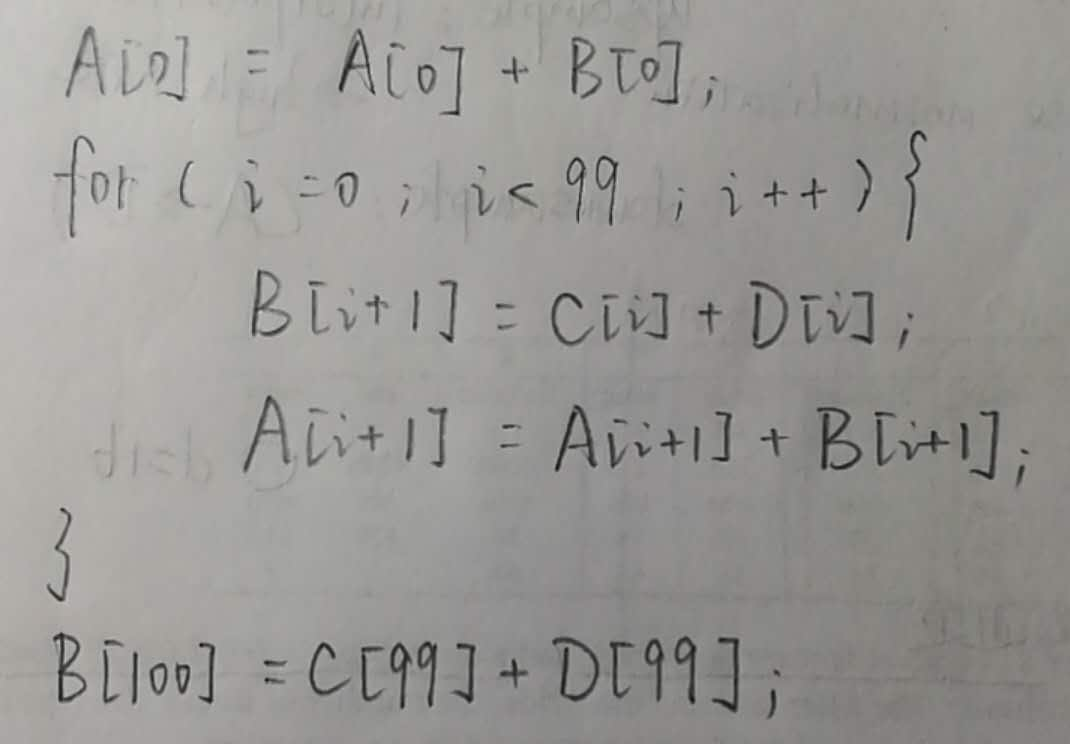 A[0] = A[0] + B[0];
for ( i =0 ; i< 99 ; i ++ ) {
B[i+1] = C[i] + D[i];
A[i+1] = A[i+1] + B[i+1];
}
B[100] = C[99] + D[99];